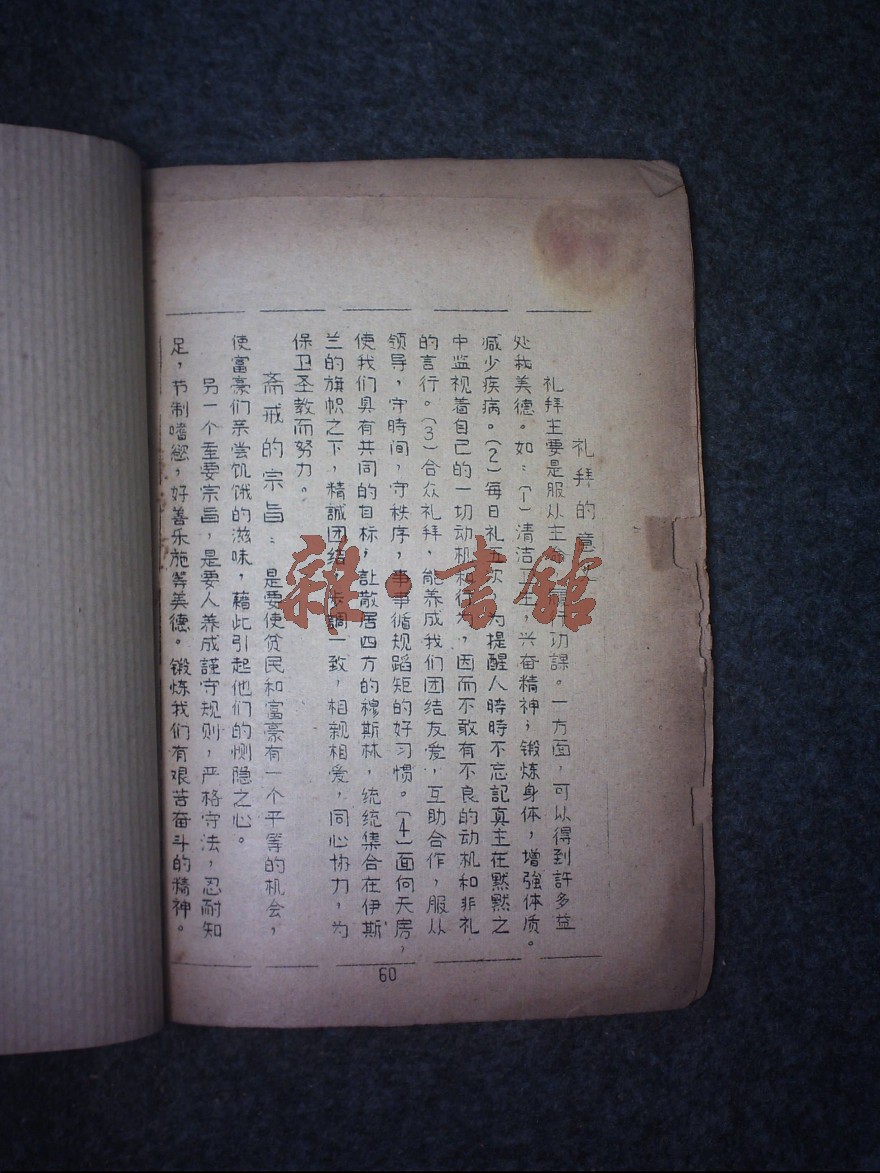 礼拜的意
礼拜主要是服从主命 功課。一方面，可以得到許多益
处和美德。如：(1)清洁 生，兴奋精神；锻炼身体，增強体质。
减少疾病。(2)每日礼五次 为提醒人時時不忘記真主在黙黙之
中监视着自己的一切动机和行为，因而不敢有不良的动机和非礼
的言行。(3)合众礼拜，能养成我们团结友爱，互助合作，服从
领导，守時间，守秩序，事事循规蹈矩的好习惯。(4)面向天房，
使我们具有共同的目标，让散居四方的穆斯林，统统集合在伊斯
兰的旗帜之下，精誠团结 調一致，相親相爱，同心协力，为
保卫圣教而努力。
斋戒的宗旨：是要使贫民和富豪有一个平等的机会，
使富豪们亲尝饥饿的滋味，藉此引起他们的恻隐之心。
另一个重要宗旨，是要人养成謹守规则，严格守法，忍耐知
足，节制嗜慾，好善乐施等美德。锻炼我们有艰苦奋斗的精神。
60
雜·書館